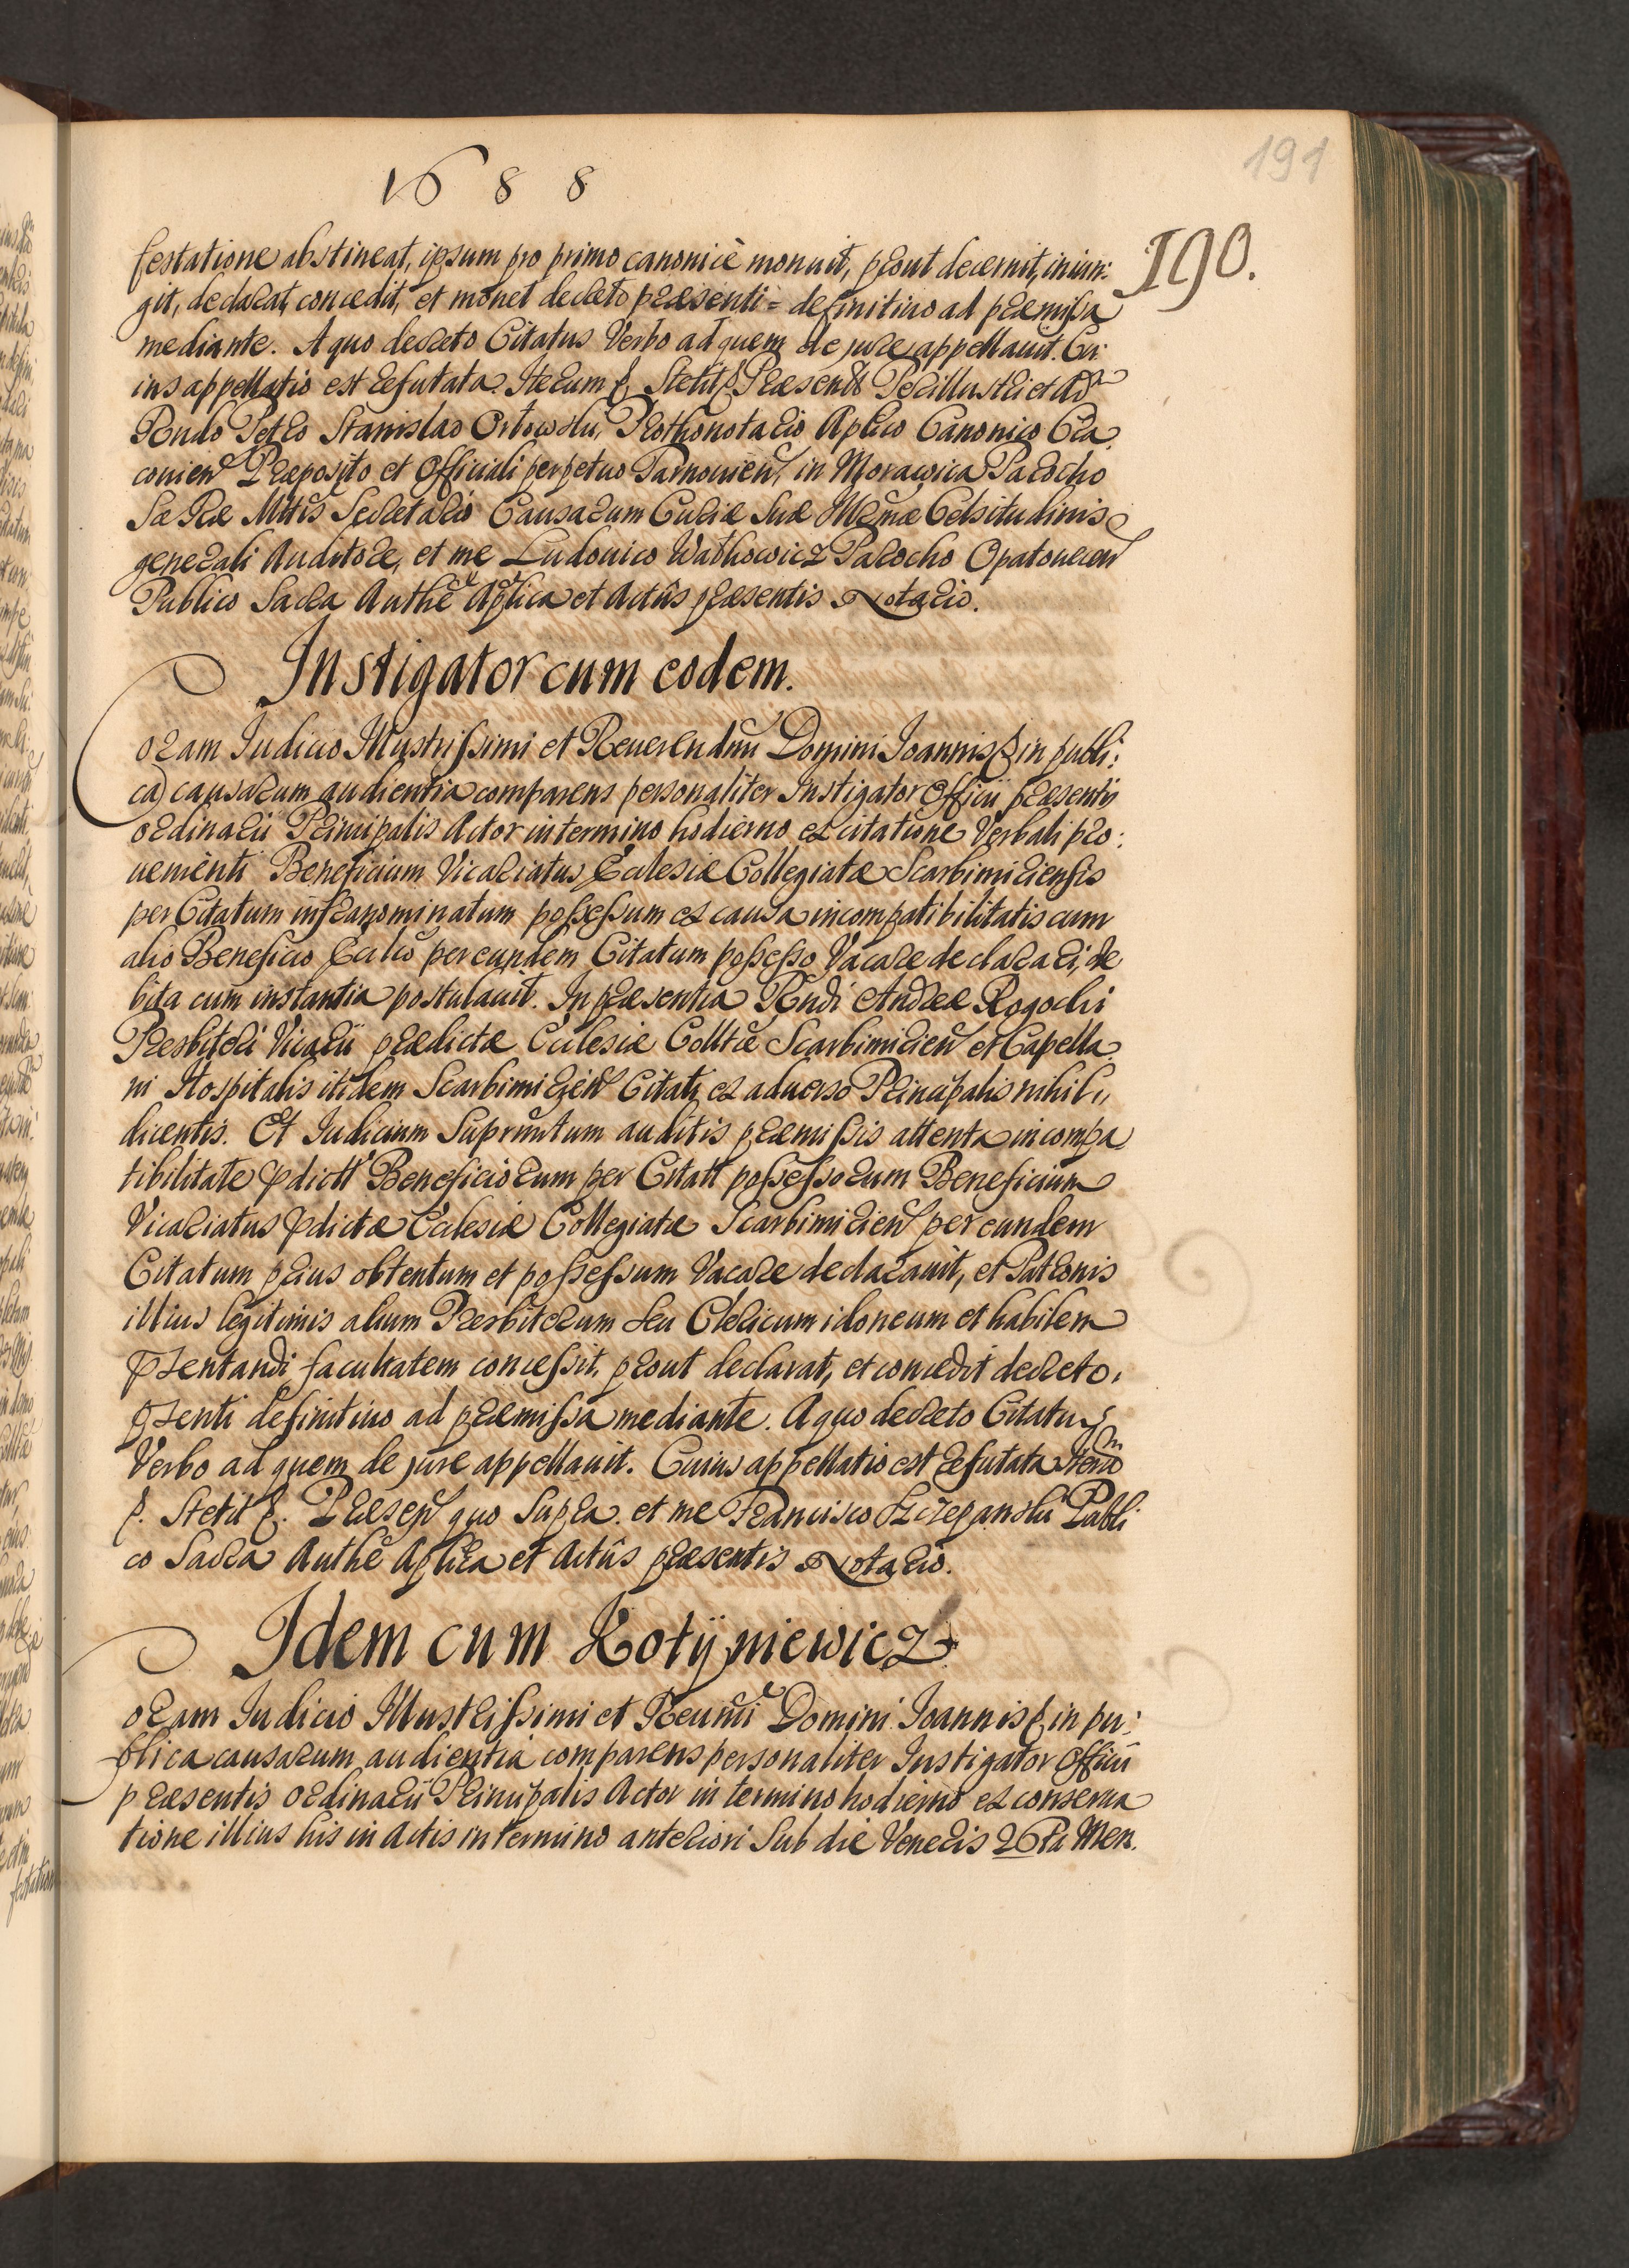 191
1688
190.
festatione abstineat, ipsum pro primo canonicè monuit, prout decernit, iniun:
git, declarat, concedit, et monet decreto præsenti = definitiuo ad præmissa
mediante. A quo decreto Citatus Verbo ad quem de jure appellauit. Cu:
ius appellatio est refutata. Iterum Stetit Præsentt Perillustri et Ad
Rndo Petro Stanislao Orłowski, Prothonotario Aplico Canonico Cra
couien Præposito et Officiali perpetuo Tarnouien, in Morawica Parocho
Sæ Ræ Mttis Secretario Causarum Curiæ Suæ Celsitudinis
generali Auditore, et me Ludouico Wathowicz Parocho Opatouien
Publico Sacra Authē Aplica et Actûs præsentis Notario.
Instigator cum eodem.
Coram Iudicio Illustrissimi et Reuerendmi Domini Joannis in publi:
ca causarum audientia comparens personaliter Instigator Officii præsentis
ordinarii Principalis Actor in termino hodierno ex citatione Verbali pro:
uenienti Beneficium Vicariatus Ecclesiæ Collegiatæ Scarbimiriensis
per Citatum infranominatum possessum ex causa incompatibilitatis cum
alio Beneficio Ecclico per eundem Citatum possesso Vacare declarari, de
bita cum instantia postulauit. In præsentia Rndi Andreæ Rogochi
Presbiteri Vicarii prædictæ Ecclesiæ Colltæ Scarbimirien et Capella
ni Hospitalis itidem Scarbimirien Citati ex aduerso Principalis nihil
dicentis. Et Iudicium Suprantum auditis præmissis attenta incompa
tibilitate pdictt Beneficiorum per Citatt possessorum Beneficium
Vicariatus pdictæ Ecclesiæ Collegiatæ Scarbimirien per eundem
Citatum prius obtentum et possessum Vacare declarauit, et Patronis
illius legitimis alium Presbiterum seu Clericum idoneum et habilem
psentandi facultatem concessit, prout declarat, et concedit decreto
psenti definitiuo ad præmissa mediante. A quo decreto Citatus
Verbo ad quem de jure appellauit. Cuius appellatio est refutata
Stetit Præsen quo supra. et me Francisco Szczepanski Publi
co Sacra Authē Aplica et Actûs præsentis Notario.
Idem cum Kotÿniewicz
Coram Iudicio Illustrissimi et Reuñdi Domini Joannis in pu:
blica causarum audientia comparens personaliter Instigator Officii
præsentis ordinarii Principalis Actor in termino hodierno ex conserua
tione illius his in Actis in termino anteriori Sub die Veneris 26 Men.